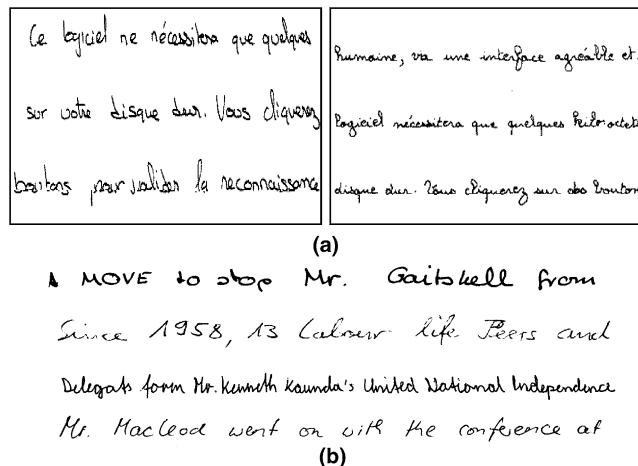 Ce logiciel ne nécessitera que quelques
sur votre disque dur. Vous cliquerez
boutons pour valider la reconnaissance
humaine, via une interface agréable et
logiciel nécessitera que quelques kilo-octets
disque dur. Vous cliquerez sur des bouton
(a)
A MOVE to stop Mr. Gaitskell from
Since 1958, 13 Labour life Peers and
Delegats form Mr. Kenneth Kaunda's United National Independence
Mr. Macleod went on with the conference at
(b)